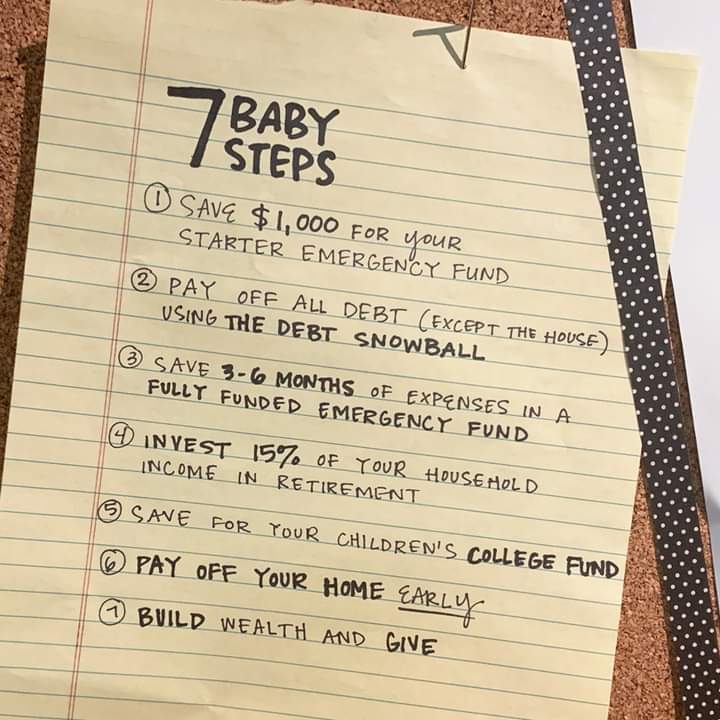 7 BABY
STEPS
1 SAVE $1,000 FOR your
STARTER EMERGENCY FUND
2 PAY OFF ALL DEBT (EXCEPT THE HOUSE)
USING THE DEBT SNOWBALL
3 SAVE 3-6 MONTHS OF EXPENSES IN A
FULLY FUNDED EMERGENCY FUND
4 INVEST 15% OF YOUR HOUSEHOLD
INCOME IN RETIREMENT
5 SAVE FOR YOUR CHILDREN'S COLLEGE FUND
6 PAY OFF YOUR HOME EARLY
7 BUILD WEALTH AND GIVE